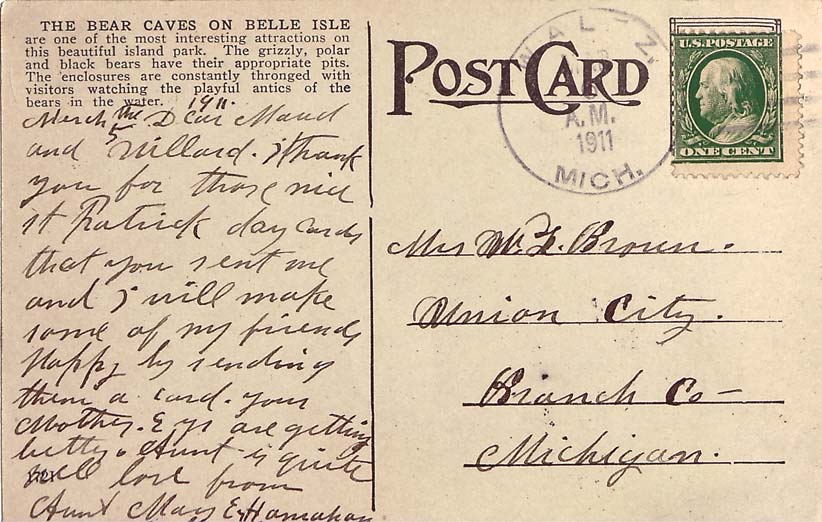 THE BEAR CAVES ON BELLE ISLE
are one of the most interesting attractions on
this beautiful island park. The grizzly, polar
and black bears have their appropriate pits.
The enclosures are constantly thronged with
visitors watching the playful antics of the
bears in the water.
1911.
March the 5 Dear Maud
and Willard. I thank
you for those nice
St Patrick day cards
that you sent me
and I will make
some of my friends
Happy by sending
them a card. your
Mother. Eys are getting
betty. Aunt is quite
well love from
Aunt Mary E. Hanahan
POST CARD
WALTZ.
A.M.
1911
MICH.
U.S. POSTAGE
ONE CENT
Mrs W. F. Brown.
Union City.
Branch Co—
Michigan.